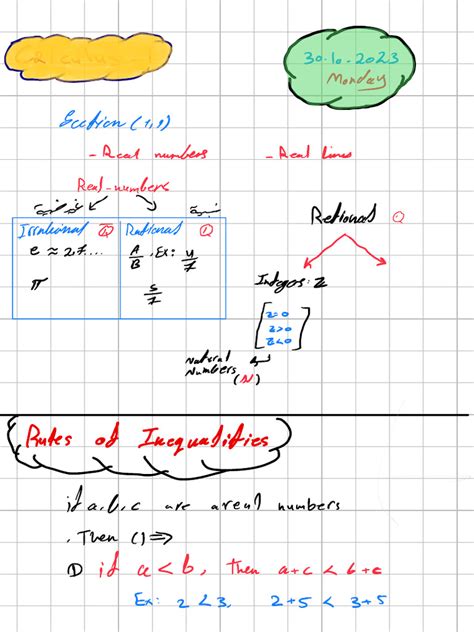 Calculus - 1
30.10.2023
Monday
Section (1,1)
- Real numbers - Real lines
Real-numbers
نسبية
Irrational Q Rational Q
e ≈ 2.7.... A/B , Ex: 4/7
π 5/7
Rational Q
Integers: Z
z=0
z>0
z<0
Natural Numbers (N)
Rules of Inequalities
if a, b, c are areal numbers
, Then () ⇒
① if a < b, then a+c < b+c
Ex: 2 < 3, 2+5 < 3+5